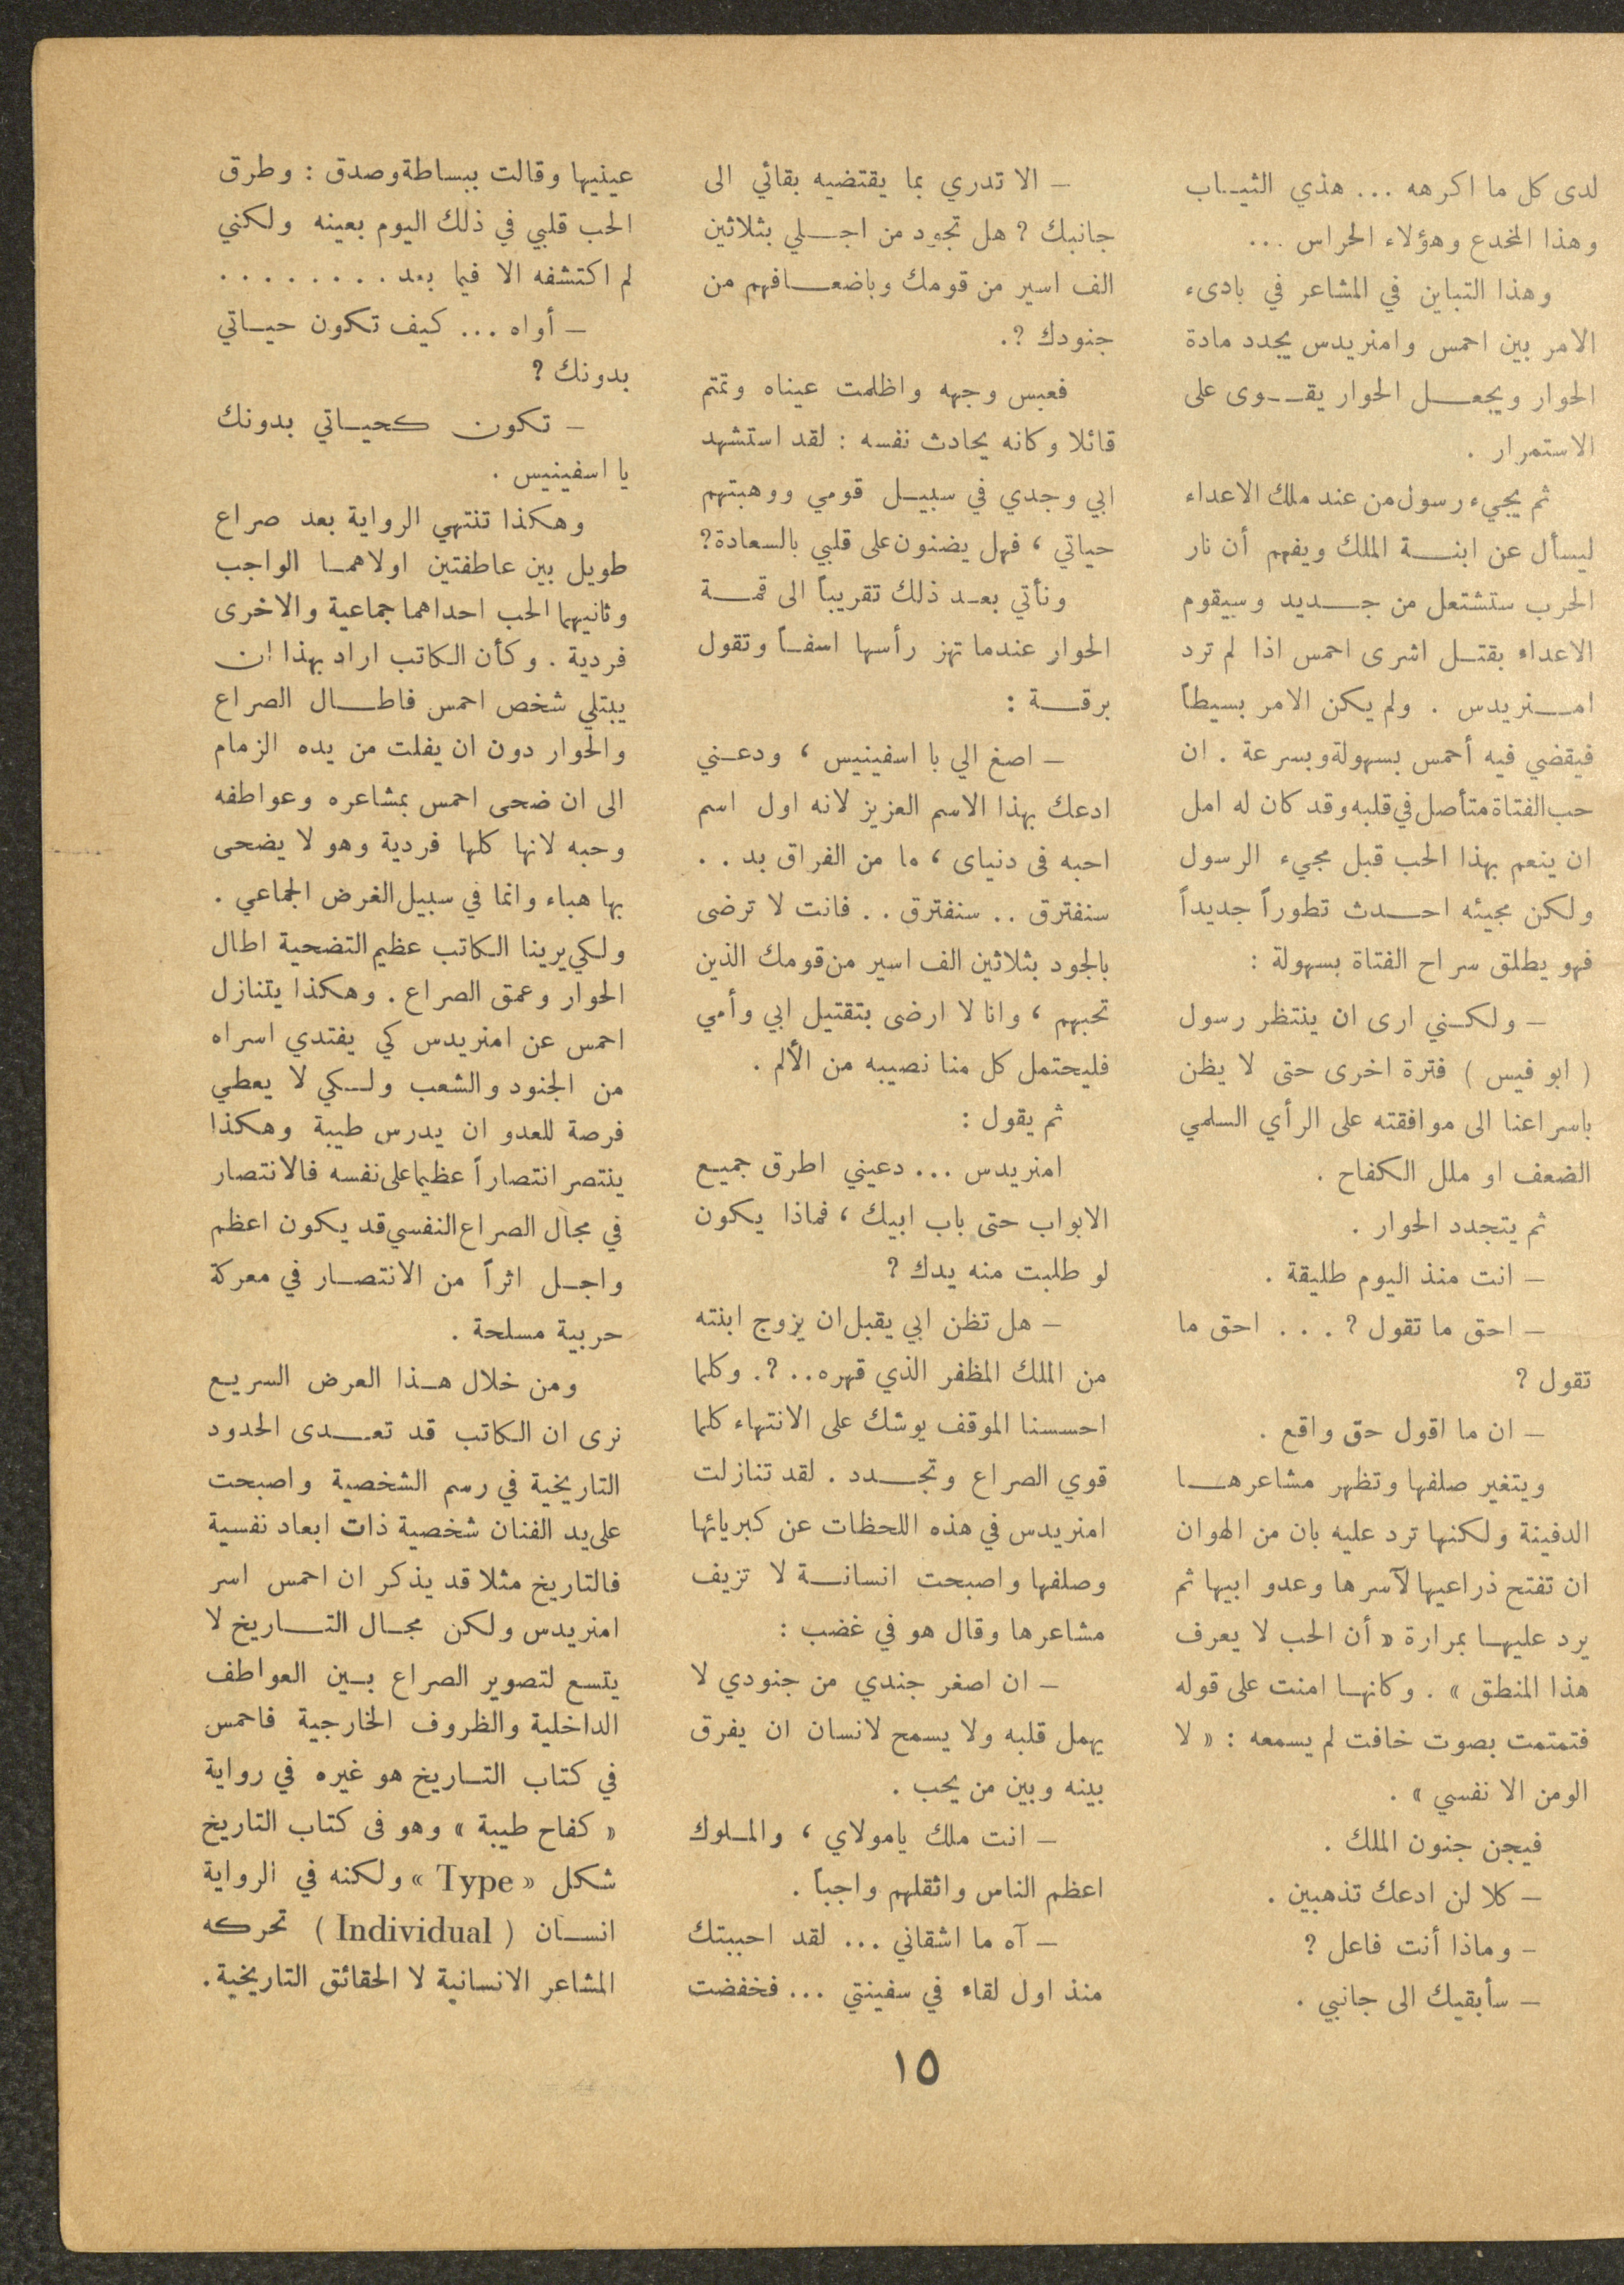 لدى كل ما اكرهه ... هذي الثيــاب
وهذا المخدع وهؤلاء الحراس ...
وهذا التباين في المشاعر في بادىء
الامر بين احمس وامنريدس يجدد مادة
الحوار ويجعـــل الحوار يقــوى على
الاستمرار .
ثم يجيء رسول من عند ملك الاعداء
ليسأل عن ابنـــة الملك ويفهم أن نار
الحرب ستشتعل من جـــديد وسيقوم
الاعداء بقتــل اسرى احمس اذا لم ترد
امــنريدس . ولم يكن الامر بسيطاً
فيقضي فيه أحمس بسهولة وبسرعة . ان
حب الفتاة متأصل في قلبه وقد كان له امل
ان ينعم بهذا الحب قبل مجيء الرسول
ولكن مجيئه احـــدث تطوراً جديداً
فهو يطلق سراح الفتاة بسهولة :
– ولكــني ارى ان ينتظر رسول
( ابو فيس ) فترة اخرى حتى لا يظن
باسراعنا الى موافقته على الرأي السلمي
الضعف او ملل الكفاح .
ثم يتجدد الحوار .
– انت منذ اليوم طليقة .
– احق ما تقول ? . . . احق ما
تقول ?
– ان ما اقول حق واقع .
ويتغير صلفها وتظهر مشاعرهـــا
الدفينة ولكنها ترد عليه بان من الهوان
ان تفتح ذراعيها لآسرها وعدو ابيها ثم
يرد عليهــا بمرارة « أن الحب لا يعرف
هذا المنطق » . وكانهــا امنت على قوله
فتمتمت بصوت خافت لم يسمعه : « لا
الومن الا نفسي » .
فيجن جنون الملك .
– كلا لن ادعك تذهبين .
– وماذا أنت فاعل ?
– سأبقيك الى جانبي .
– الا تدري بما يقتضيه بقائي الى
جانبك ? هل تجود من اجـــلي بثلاثين
الف اسير من قومك وباضعـــافهم من
جنودك ?.
فعبس وجهه واظلمت عيناه وتمتم
قائلا وكانه يحادث نفسه : لقد استشهد
ابي وجدي في سبيــل قومي ووهبتهم
حياتي ، فهل يضنون على قلبي بالسعادة?
ونأتي بعــد ذلك تقريباً الى قمـــة
الحوار عندما تهز رأسها اسفــاً وتقول
برقـــة :
– اصغ الي با اسفينيس ، ودعــني
ادعك بهذا الاسم العزيز لانه اول اسم
احبه فى دنياى ، ما من الفراق بد . .
سنفترق .. سنفترق .. فانت لا ترضى
بالجود بثلاثين الف اسير من قومك الذين
تحبهم ، وانا لا ارضى بتقتيل ابي وأمي
فليحتمل كل منا نصيبه من الألم .
ثم يقول :
امنريدس ... دعيني اطرق جميـع
الابواب حتى باب ابيك ، فماذا يكون
لو طلبت منه يدك ?
– هل تظن ابي يقبل ان يزوج ابنته
من الملك المظفر الذي قهره.. ?. وكلما
احسسنا الموقف يوشك على الانتهاء كلما
قوي الصراع وتجـــدد . لقد تنازلت
امنريدس في هذه اللحظات عن كبريائها
وصلفها واصبحت انسانـــة لا تزيف
مشاعرها وقال هو في غضب :
– ان اصغر جندي من جنودي لا
يهمل قلبه ولا يسمح لانسان ان يفرق
بينه وبين من يحب .
– انت ملك يامولاي ، والمــلوك
اعظم الناس واثقلهم واجباً .
– آه ما اشقاني ... لقد احببتك
منذ اول لقاء في سفينتي ... فخفضت
عينيها وقالت ببساطة وصدق : وطرق
الحب قلبي في ذلك اليوم بعينه ولكني
لم اكتشفه الا فيما بعد . . . . . . . .
– أواه ... كيف تكون حيــاتي
بدونك ?
– تكون كحيــاتي بدونك
يا اسفينيس .
وهكذا تنتهي الرواية بعد صراع
طويل بين عاطفتين اولاهمــا الواجب
وثانيهما الحب احداهما جماعية والاخرى
فردية . وكأن الكاتب اراد بهذا ان
يبتلي شخص احمس فاطـــال الصراع
والحوار دون ان يفلت من يده الزمام
الى ان ضحى احمس بمشاعره وعواطفه
وحبه لانها كلها فردية وهو لا يضحى
بها هباء وانما في سبيل الغرض الجماعي .
ولكي يرينا الكاتب عظيم التضحية اطال
الحوار وعمق الصراع . وهكذا يتنازل
احمس عن امنريدس كي يفتدي اسراه
من الجنود والشعب ولــكي لا يعطي
فرصة للعدو ان يدرس طيبة وهكذا
ينتصر انتصاراً عظيما على نفسه فالانتصار
في مجال الصراع النفسي قد يكون اعظم
واجــل اثراً من الانتصــار في معركة
حربية مسلحة .
ومن خلال هــذا العرض السريـع
نرى ان الكاتب قد تعـــدى الحدود
التاريخية في رسم الشخصية واصبحت
على يد الفنان شخصية ذات ابعاد نفسية
فالتاريخ مثلا قد يذكر ان احمس اسر
امنريدس ولكن مجــال التـــاريخ لا
يتسع لتصوير الصراع بــين العواطف
الداخلية والظروف الخارجية فاحمس
في كتاب التــاريخ هو غيره في رواية
« كفاح طيبة » وهو فى كتاب التاريخ
شكل « Type » ولكنه في الرواية
انســان ( Individual ) تحركه
المشاعر الانسانية لا الحقائق التاريخية .
١٥